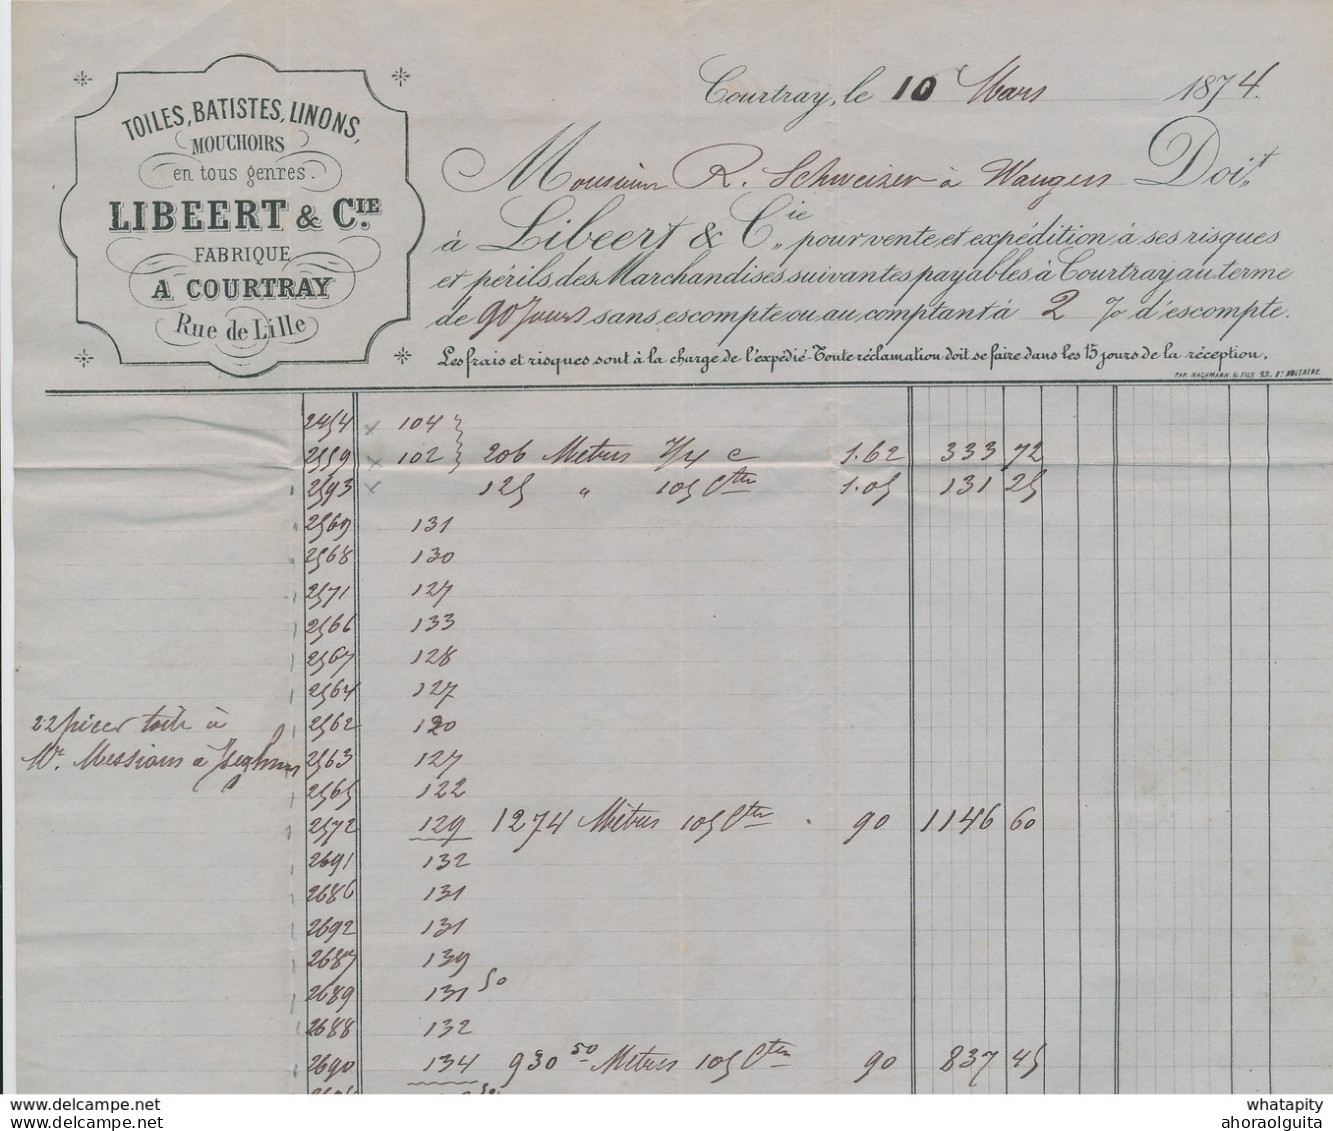 TOILES, BATISTES, LINONS,
MOUCHOIRS
en tous genres.
LIBEERT & CIE.
FABRIQUE
A COURTRAY
Rue de Lille
Courtray, le 10 Mars 1874.
Monsieur R. Schweizer à Doit
à Libeert & Cie., pour vente et expédition à ses risques
et périls des Marchandises suivantes payables à Courtray au terme
de 90 Jours sans escompte ou au comptant à 2 % d'escompte.
Les frais et risques sont à la charge de l'expédié - Toute réclamation doit se faire dans les 15 jours de la réception.
PAP. HACHMANN & FILS 22, Bd VOLTAIRE
2454 x 104
2559 x 102 206 Metres 7/4 c 1.62 333 72
2593 x 125 " 105 Ctm 1.05 131 25
2569 131
2568 130
2571 127
2566 133
2567 128
2564 127
22 pieces toile à
2562 120
Mr. Messiaen à
2563 127
2565 122
2572 129 1274 Mètres 105 Ctm . 90 1146 60
2691 132
2686 131
2692 131
2687 139
2689 131 50
2688 132
2690 134 930 50 Metres 105 Ctm 90 837 45
whatapity
ahoraolguita
whatapity
ahoraolguita